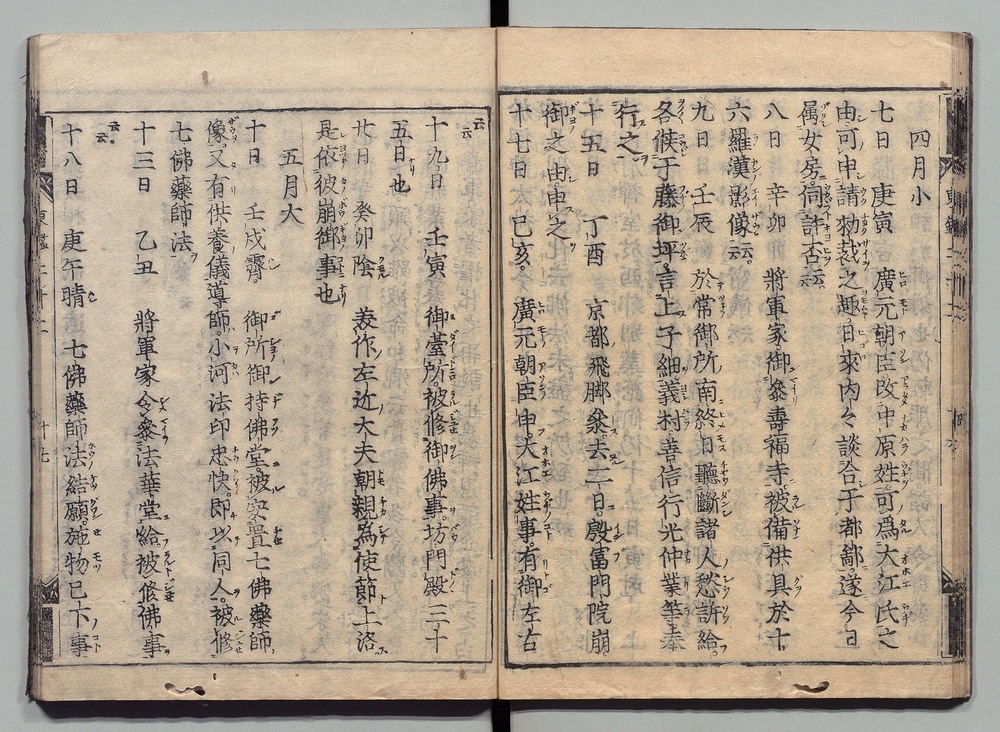 四月小
七日　庚寅　廣元朝臣改中原姓可爲大江氏之
由可申請勅裁之趣日來内々談合于都鄙遂今日
属女房伺許否云云
八日　辛卯　將軍家御參壽福寺被備供具於十
六羅漢影像云云
九日　壬辰　於常御所南終日聽斷諸人愁訴給
各候于藤御坪言上子細義村善信行光仲業等奉
行之
十五日　丁酉　京都飛脚參去二日殷富門院崩
御之由申之
十七日　己亥　廣元朝臣申大江姓事有御左右
云云
十九日　壬寅　御臺所被修御佛事坊門殿三十
五日也
廿日　癸卯陰　美作左近大夫朝親為使節上洛
是依彼崩御事也
五月大
十日　壬戌霽　御所御持佛堂被安置七佛藥師
像又有供養儀導師小河法印忠快即以同人被修
七佛藥師法
十三日　乙丑　將軍家令參法華堂給被修佛事
云云
十八日庚午晴　七佛藥師法結願施物已下事